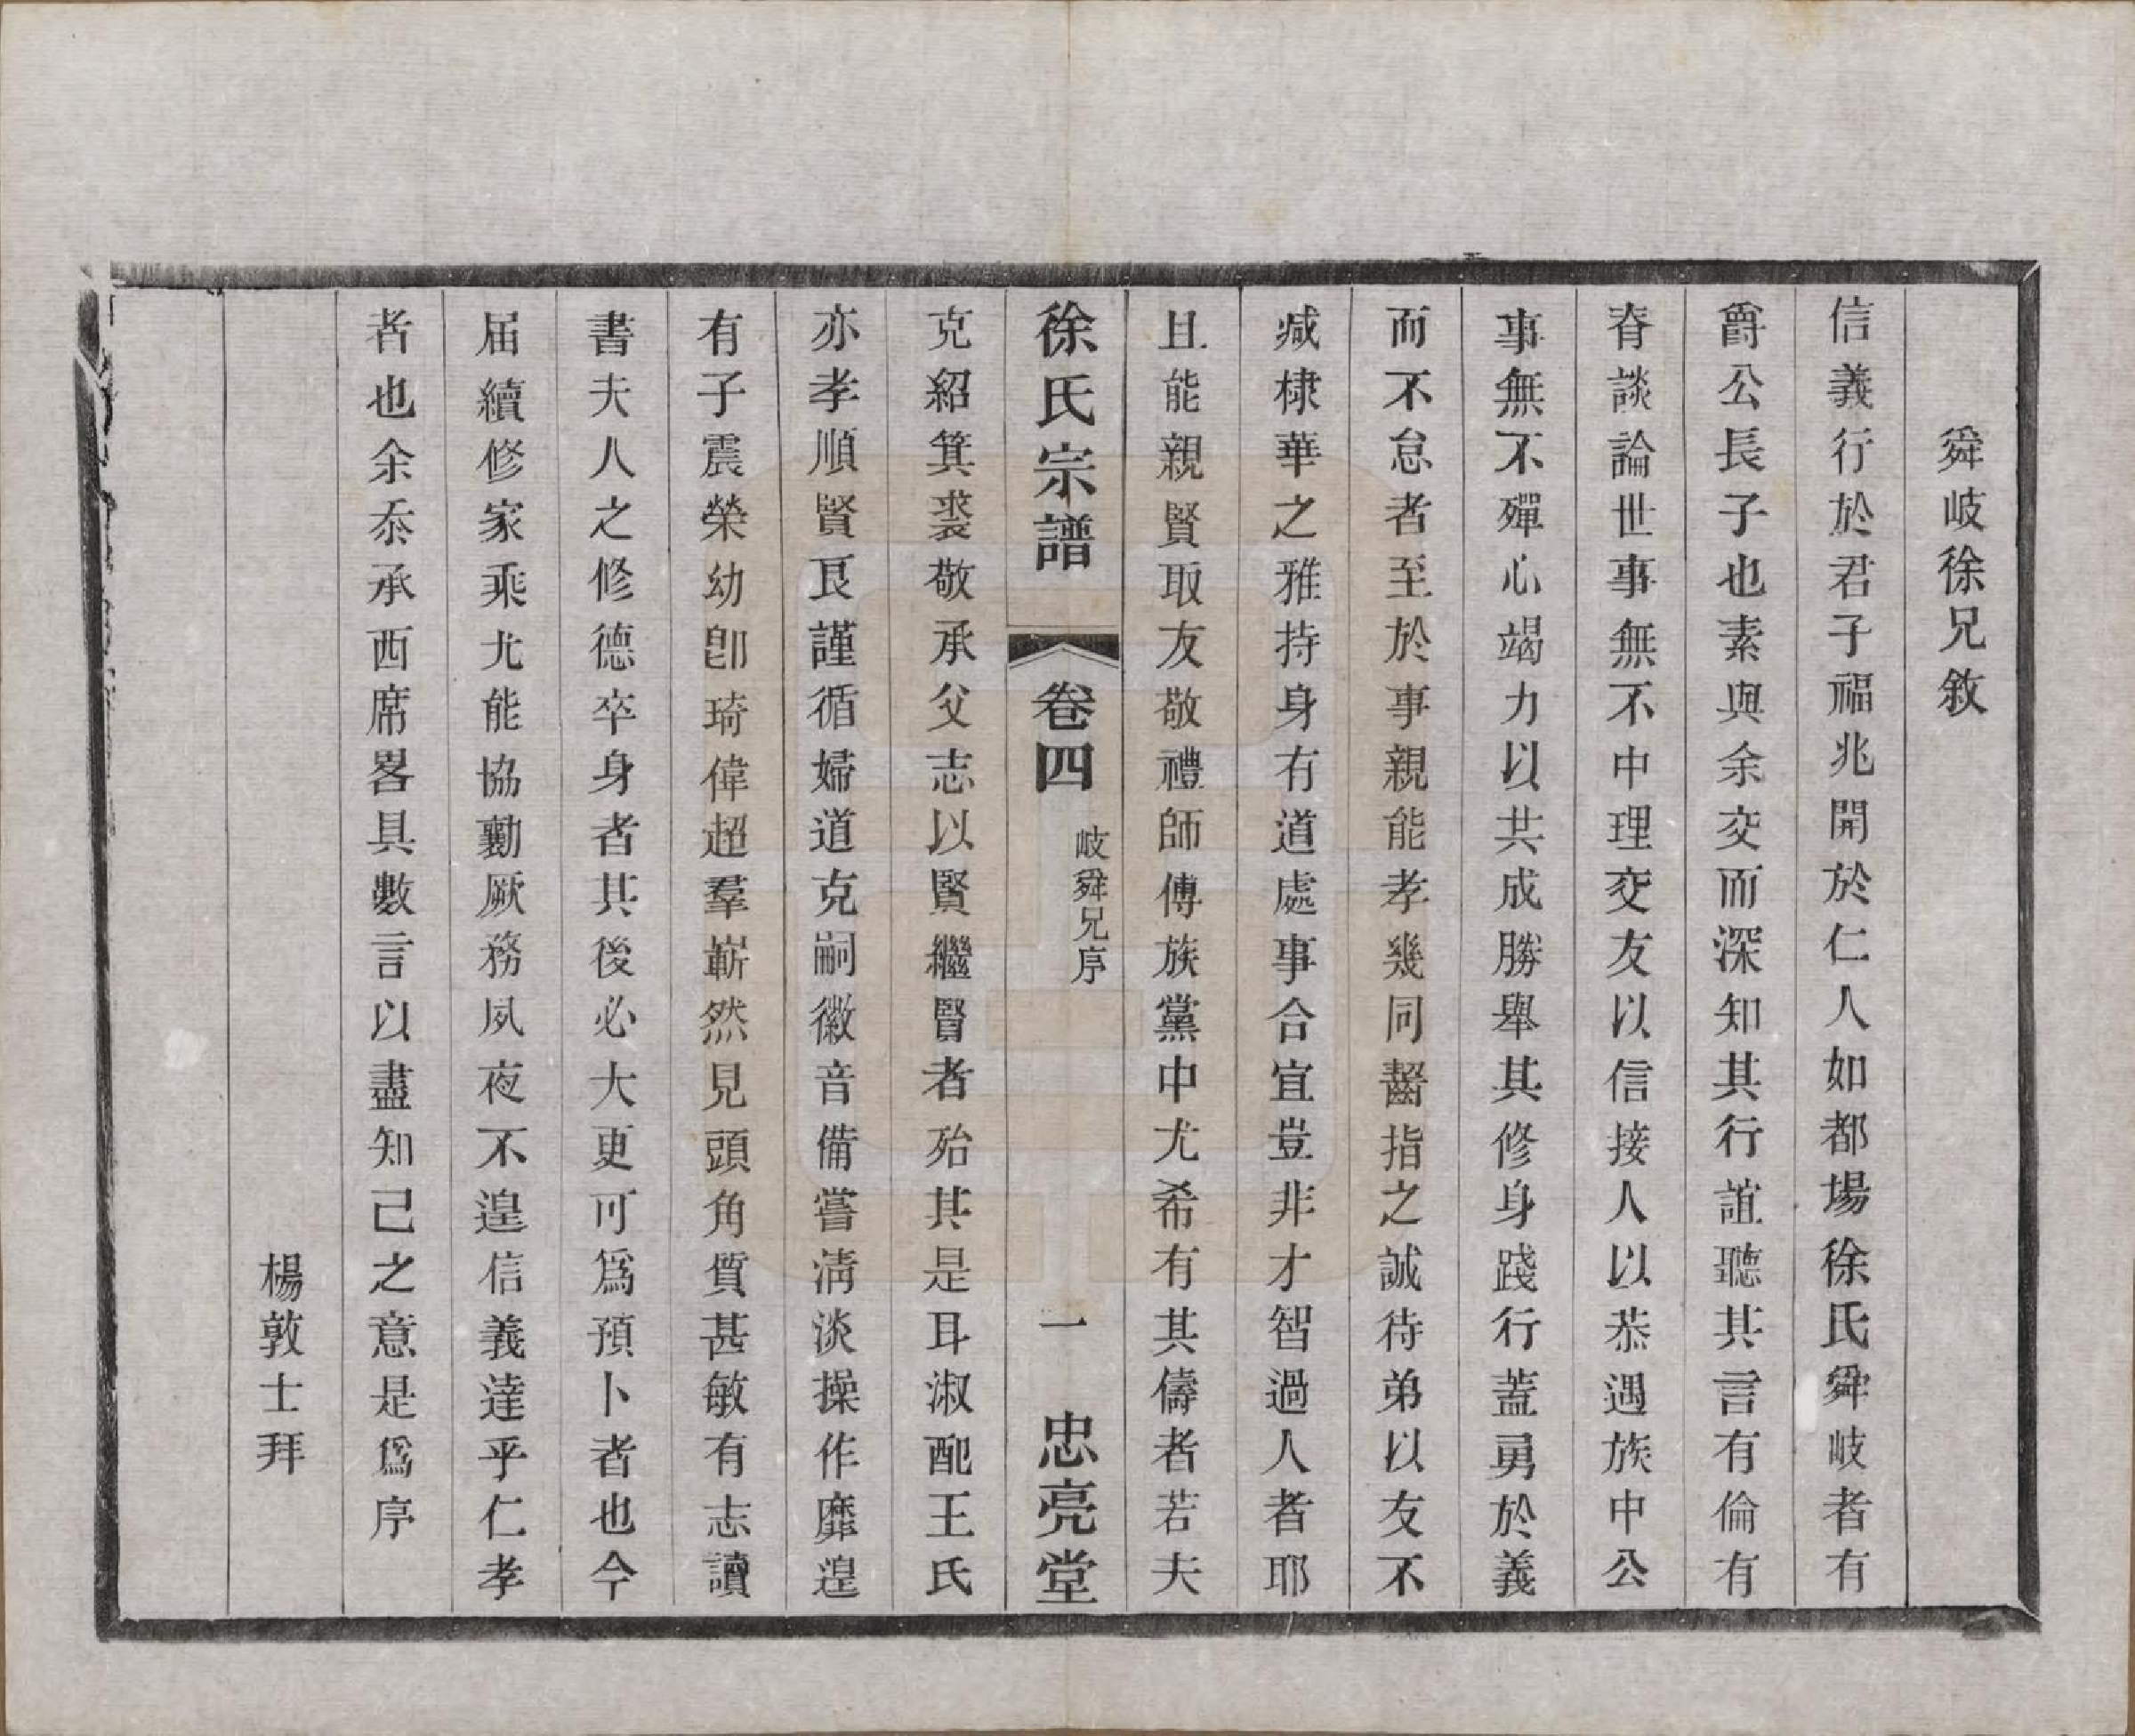 舜岐徐兄敘
信義行於君子福兆開於仁人如都場徐氏舜岐者有
爵公長子也素與余交而深知其行誼聽其言有倫有
脊談論世事無不中理交友以信接人以恭遇族中公
事無不殫心竭力以共成勝舉其修身踐行蓋勇於義
而不怠者至於事親能孝幾同齧指之誠待弟以友不
減棣華之雅持身有道處事合宜豈非才智過人者耶
且能親賢取友敬禮師傅族黨中尤希有其儔者若夫
徐氏宗譜 卷四 岐舜兄序 一 忠亮堂
克紹箕裘敬承父志以賢繼賢者殆其是耳淑配王氏
亦孝順賢良謹循婦道克嗣徽音備嘗淸淡操作靡遑
有子震榮幼卽琦偉超羣嶄然見頭角質甚敏有志讀
書夫人之修德卒身者其後必大更可爲預卜者也今
届續修家乘尤能協勷厥務夙夜不遑信義達乎仁孝
者也余忝承西席畧具數言以盡知己之意是爲序
楊敦士拜